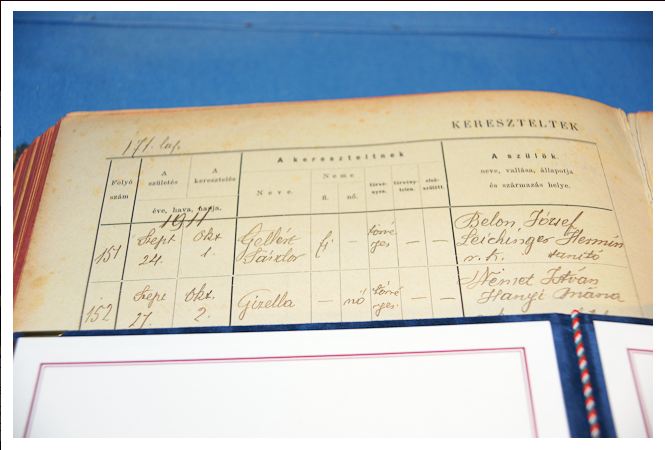 KERESZTELTEK
171. lap.
Folyó szám
A születés
A keresztelés
éve, hava, napja.
A kereszteltnek
Neve.
Neme
fi.
nő.
törvényes.
törvénytelen.
A szülők
neve, vallása, állapotja
és származás helye.
1911
151
Szept 24.
Okt 1.
Gellért
Sándor
fi
—
törvé
nyes
—
—
Belon József
Leichinger Hermin
r. k. tanító
152
Szept 27.
Okt. 2.
Gizella
—
nő
törvé
nyes
—
—
Német István
Hanyi Mária